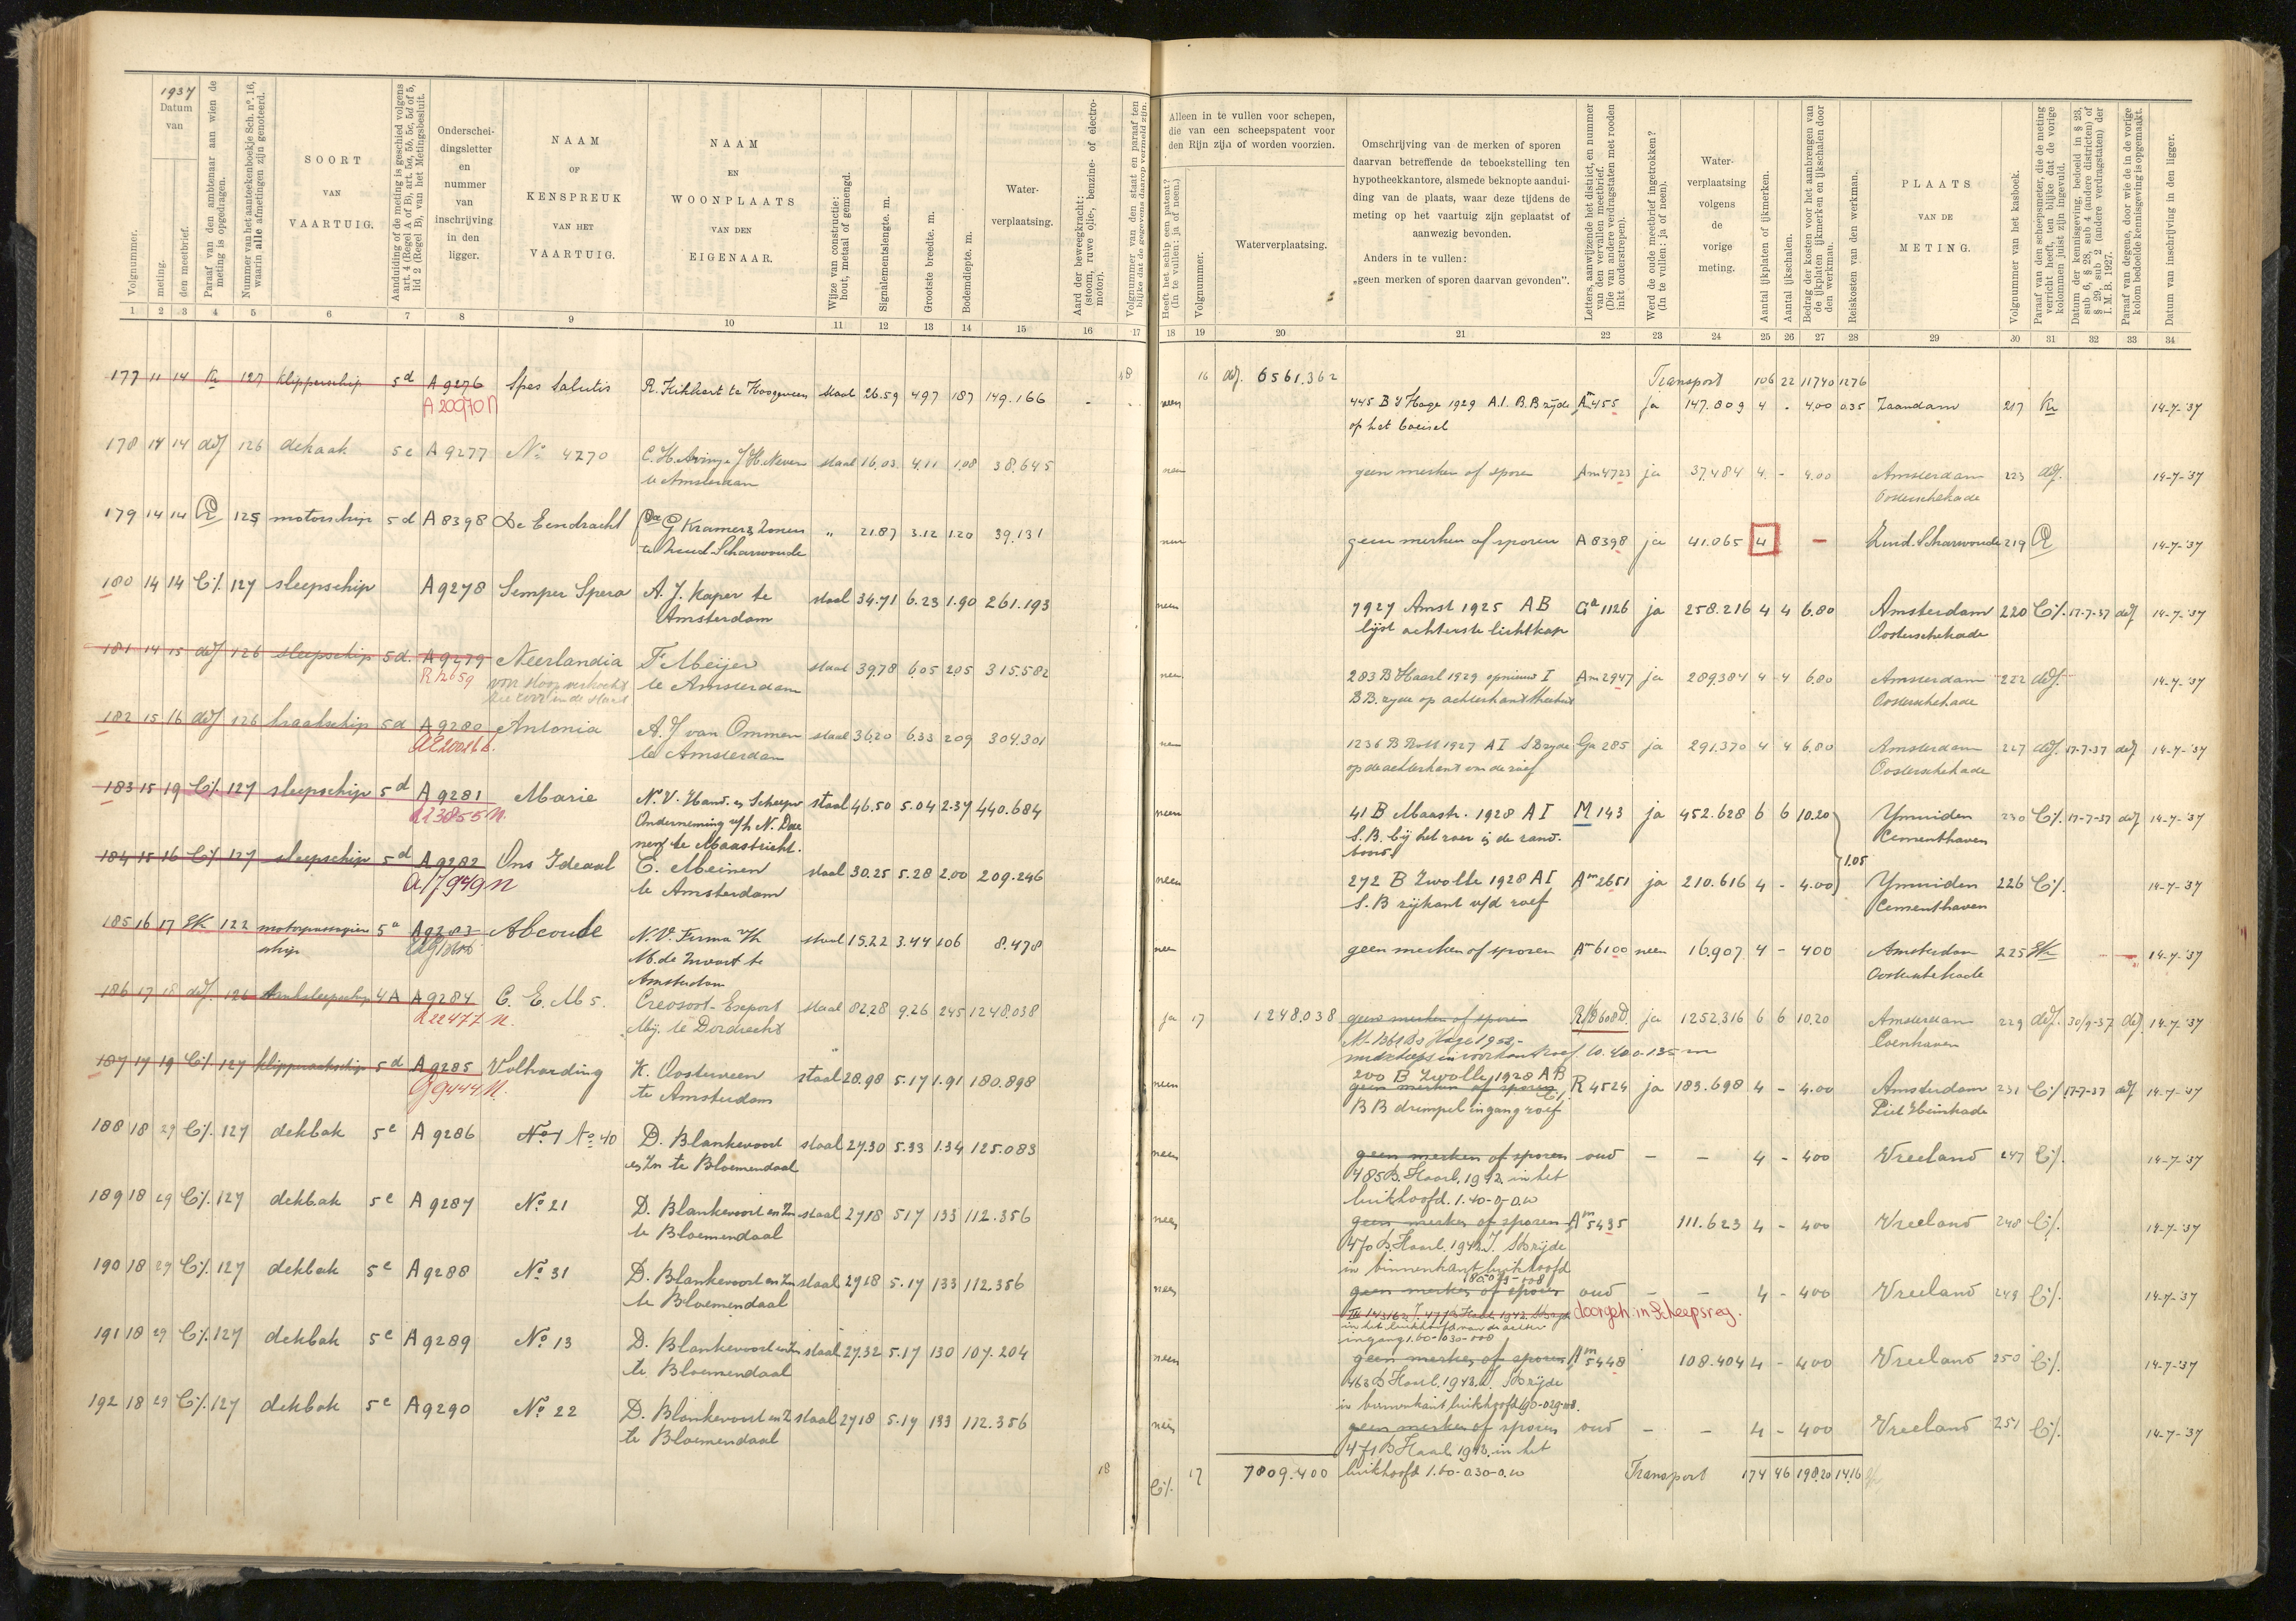 1937
Datum
van
Volgnummer.
meting.
den meetbrief.
Paraaf van den ambtenaar aan wien de
meting is opgedragen.
Nummer van het aanteekenboekje Sch. nº. 16,
waarin alle afmetingen zijn genoteerd.
SOORT
VAN
VAARTUIG.
Aanduiding of de meting is geschied volgens
art. 4 (Regel A of B), art. 5a, 5b, 5c, 5d of 5,
lid 2 (Regel B), van het Metingsbesluit.
Onderschei-
dingsletter
en
nummer
van
inschrijving
in den
ligger.
NAAM
OF
KENSPREUK
VAN HET
VAARTUIG.
NAAM
EN
WOONPLAATS
VAN DEN
EIGENAAR.
Wijze van constructie:
hout, metaal of gemengd.
Signalementslengte. m.
Grootste breedte. m.
Bodemdiepte. m.
Water-
verplaatsing.
Aard der beweegkracht:
(stoom, ruwe olie-, benzine- of electro-
motor).
Volgnummer van den staat en paraaf ten
blijke dat de gegevens daarop vermeld zijn.
Alleen in te vullen voor schepen,
die van een scheepspatent voor
den Rijn zijn of worden voorzien.
Heeft het schip een patent?
(In te vullen: ja of neen.)
Volgnummer.
Waterverplaatsing.
Omschrijving van de merken of sporen
daarvan betreffende de teboekstelling ten
hypotheekkantore, alsmede beknopte aandui-
ding van de plaats, waar deze tijdens de
meting op het vaartuig zijn geplaatst of
aanwezig bevonden.
Anders in te vullen:
„geen merken of sporen daarvan gevonden”.
Letters, aanwijzende het district, en nummer
van den vervallen meetbrief.
(Die van andere verdragstaten met rooden
inkt onderstrepen).
Werd de oude meetbrief ingetrokken?
(In te vullen: ja of neen).
Water-
verplaatsing
volgens
de
vorige
meting.
Aantal ijkplaten of ijkmerken.
Aantal ijkschalen.
Bedrag der kosten voor het aanbrengen van
de ijkplaten ijkmerken en ijkschalen door
den werkman.
Reiskosten van den werkman.
PLAATS
VAN DE
METING.
Volgnummer van het kasboek.
Paraaf van den scheepsmeter, die de meting
verricht heeft, ten blijke dat de vorige
kolommen juist zijn ingevuld.
Datum der kennisgeving, bedoeld in § 23,
sub 6, § 28, sub 4 (andere districten) of
§ 29, sub 2 (andere verdragstaten) der
I. M. B. 1927.
Paraaf van degene, door wie de in de vorige
kolom bedoelde kennisgeving is opgemaakt.
Datum van inschrijving in den ligger.
1 2 3 4 5 6 7 8 9 10 11 12 13 14 15 16 17 18 19 20 21 22 23 24 25 26 27 28 29 30 31 32 33 34
18 16 6561.362 Transport 106 22 117.40 12.76
177 11 14 Kr 127 klipperschip 5d A 9276 Spes Salutis R. Kikkert te Hoogeveen staal 26.59 4.97 1.87 149.166 - neen 445 B 's Hage 1929 A.I. B.B zijde Am 455 ja 147.809 4 - 4.00 0.35 Zaandam 217 Kr 14-7-'37
A 20070 N op het boeisel
178 14 14 126 dekaak 5c A 9277 No 4270 te Amsterdam staal 16.03 4.11 1.08 38.645 neen geen merken of sporen Am 4723 ja 37.484 4 - 4.00 Amsterdam 223 14-7-'37
Oosterschekade
179 14 14 125 motorschip 5d A 8398 De Eendracht G Kramer & Zonen „ 21.87 3.12 1.20 39.131 neen geen merken of sporen A 8398 ja 41.065 4 - Zuid-Scharwoude 219 14-7-'37
te Zuid-Scharwoude
180 14 14 127 sleepschip A 9278 Semper Spera A. J. Kaper te staal 34.71 6.23 1.90 261.193 neen 7927 Amst 1925 AB Ga 1126 ja 258.216 4 4 6.80 Amsterdam 220 17-7-37 14-7-'37
Amsterdam lijst achterste lichtkap Oosterschekade
181 14 15 126 sleepschip 5d. A 9279 Neerlandia F Meijer staal 39.78 6.05 2.05 315.582 neen 283 B Haarl 1929 opnieuw I Am 2947 ja 289.384 4 4 6.80 Amsterdam 222 14-7-'37
R 12659 voor sloop verkocht te Amsterdam B.B. zijde op achterkant Oosterschekade
182 15 16 126 5d A 9280 Antonia A. J van Ommen staal 36.20 6.33 2.09 304.301 neen 1236 B Rott 1927 A I SB zyde Ga 285 ja 291.370 4 4 6.80 Amsterdam 227 17-7-37 14-7-'37
te Amsterdam op de achterkant van de roef Oosterschekade
183 15 19 127 sleepschip 5d A 9281 Marie N.V. Hand. en Scheepv staal 46.50 5.04 2.37 440.684 neen 41 B Maastr. 1928 A I M 143 ja 452.628 6 6 10.20 Ymuiden 230 17-7-37 14-7-'37
Onderneming v/h N. Dae S.B. bij het roer Cementhaven
te Maastricht.
184 15 16 127 sleepschip 5d A 9282 Ons Ideaal E. Meinen staal 30.25 5.28 2.00 209.246 neen 272 B Zwolle 1928 A I Am 2651 ja 210.616 4 - 4.00 1.05 Ymuiden 226 14-7-'37
A 17949 N te Amsterdam S.B zijkant v/d roef Cementhaven
185 16 17 122 motorpassagiers 5a A 9283 Abcoude N.V. Firma v/h staal 15.22 3.44 1.06 8.478 neen geen merken of sporen Am 6100 neen 16.907 4 - 4.00 Amsterdam 225 14-7-'37
schip M. de Zwart te Amsterdam Oosterschekade
186 17 18 126 4A A 9284 C. E. M 5. Creosoot-Export staal 82.28 9.26 2.45 1248.038 ja 17 1248.038 geen merken of sporen ja 1252.316 6 6 10.20 Amsterdam 229 30/9-37 14-7-'37
R 22477 N. Mij. te Dordrecht Coenhaven
187 17 19 127 5d A 9285 Volharding K. Oosterveen staal 28.98 5.17 1.91 180.898 neen 200 B Zwolle 1928 AB R 4524 ja 183.698 4 - 4.00 Amsterdam 231 17-7-37 14-7-'37
G 9444 N. te Amsterdam geen merken of sporen
BB drempel ingang roef Piet Heinkade
188 18 29 127 dekbak 5c A 9286 No 1 No 40 D. Blankevoort staal 27.30 5.33 1.34 125.083 neen geen merken of sporen oud - - 4 - 4.00 Vreeland 247 14-7-'37
en Zn te Bloemendaal 485 B. Haarl. 1942. in het
luikhoofd. 1.40-0-0.10
189 18 29 127 dekbak 5c A 9287 No 21 D. Blankevoort en Zn staal 27.18 5.17 1.33 112.356 neen geen merken of sporen Am 5435 111.623 4 - 4.00 Vreeland 248 14-7-'37
te Bloemendaal 470 B. Haarl. 1942. I. SB zijde
in binnenkant luikhoofd
190 18 29 127 dekbak 5c A 9288 No 31 D. Blankevoort en Zn staal 27.18 5.17 1.33 112.356 neen geen merken of sporen oud - - 4 - 4.00 Vreeland 249 14-7-'37
te Bloemendaal doorgeh. in Scheepsreg.
ingang 1.60-0.30-0.08
191 18 29 127 dekbak 5c A 9289 No 13 D. Blankevoort en Zn staal 27.32 5.17 1.30 107.204 neen geen merken of sporen Am 5448 108.404 4 - 4.00 Vreeland 250 14-7-'37
te Bloemendaal 463 B Haarl. 1943. I. SB zijde
in binnenkant luikhoofd
192 18 29 127 dekbak 5c A 9290 No 22 D. Blankevoort en Z staal 27.18 5.17 1.33 112.356 neen geen merken of sporen oud - - 4 - 4.00 Vreeland 251 14-7-'37
te Bloemendaal 471 B Haarl 1943. in het
18 17 7809.400 luikhoofd 1.60-0.30-0.10 Transport 174 46 198.20 14.16